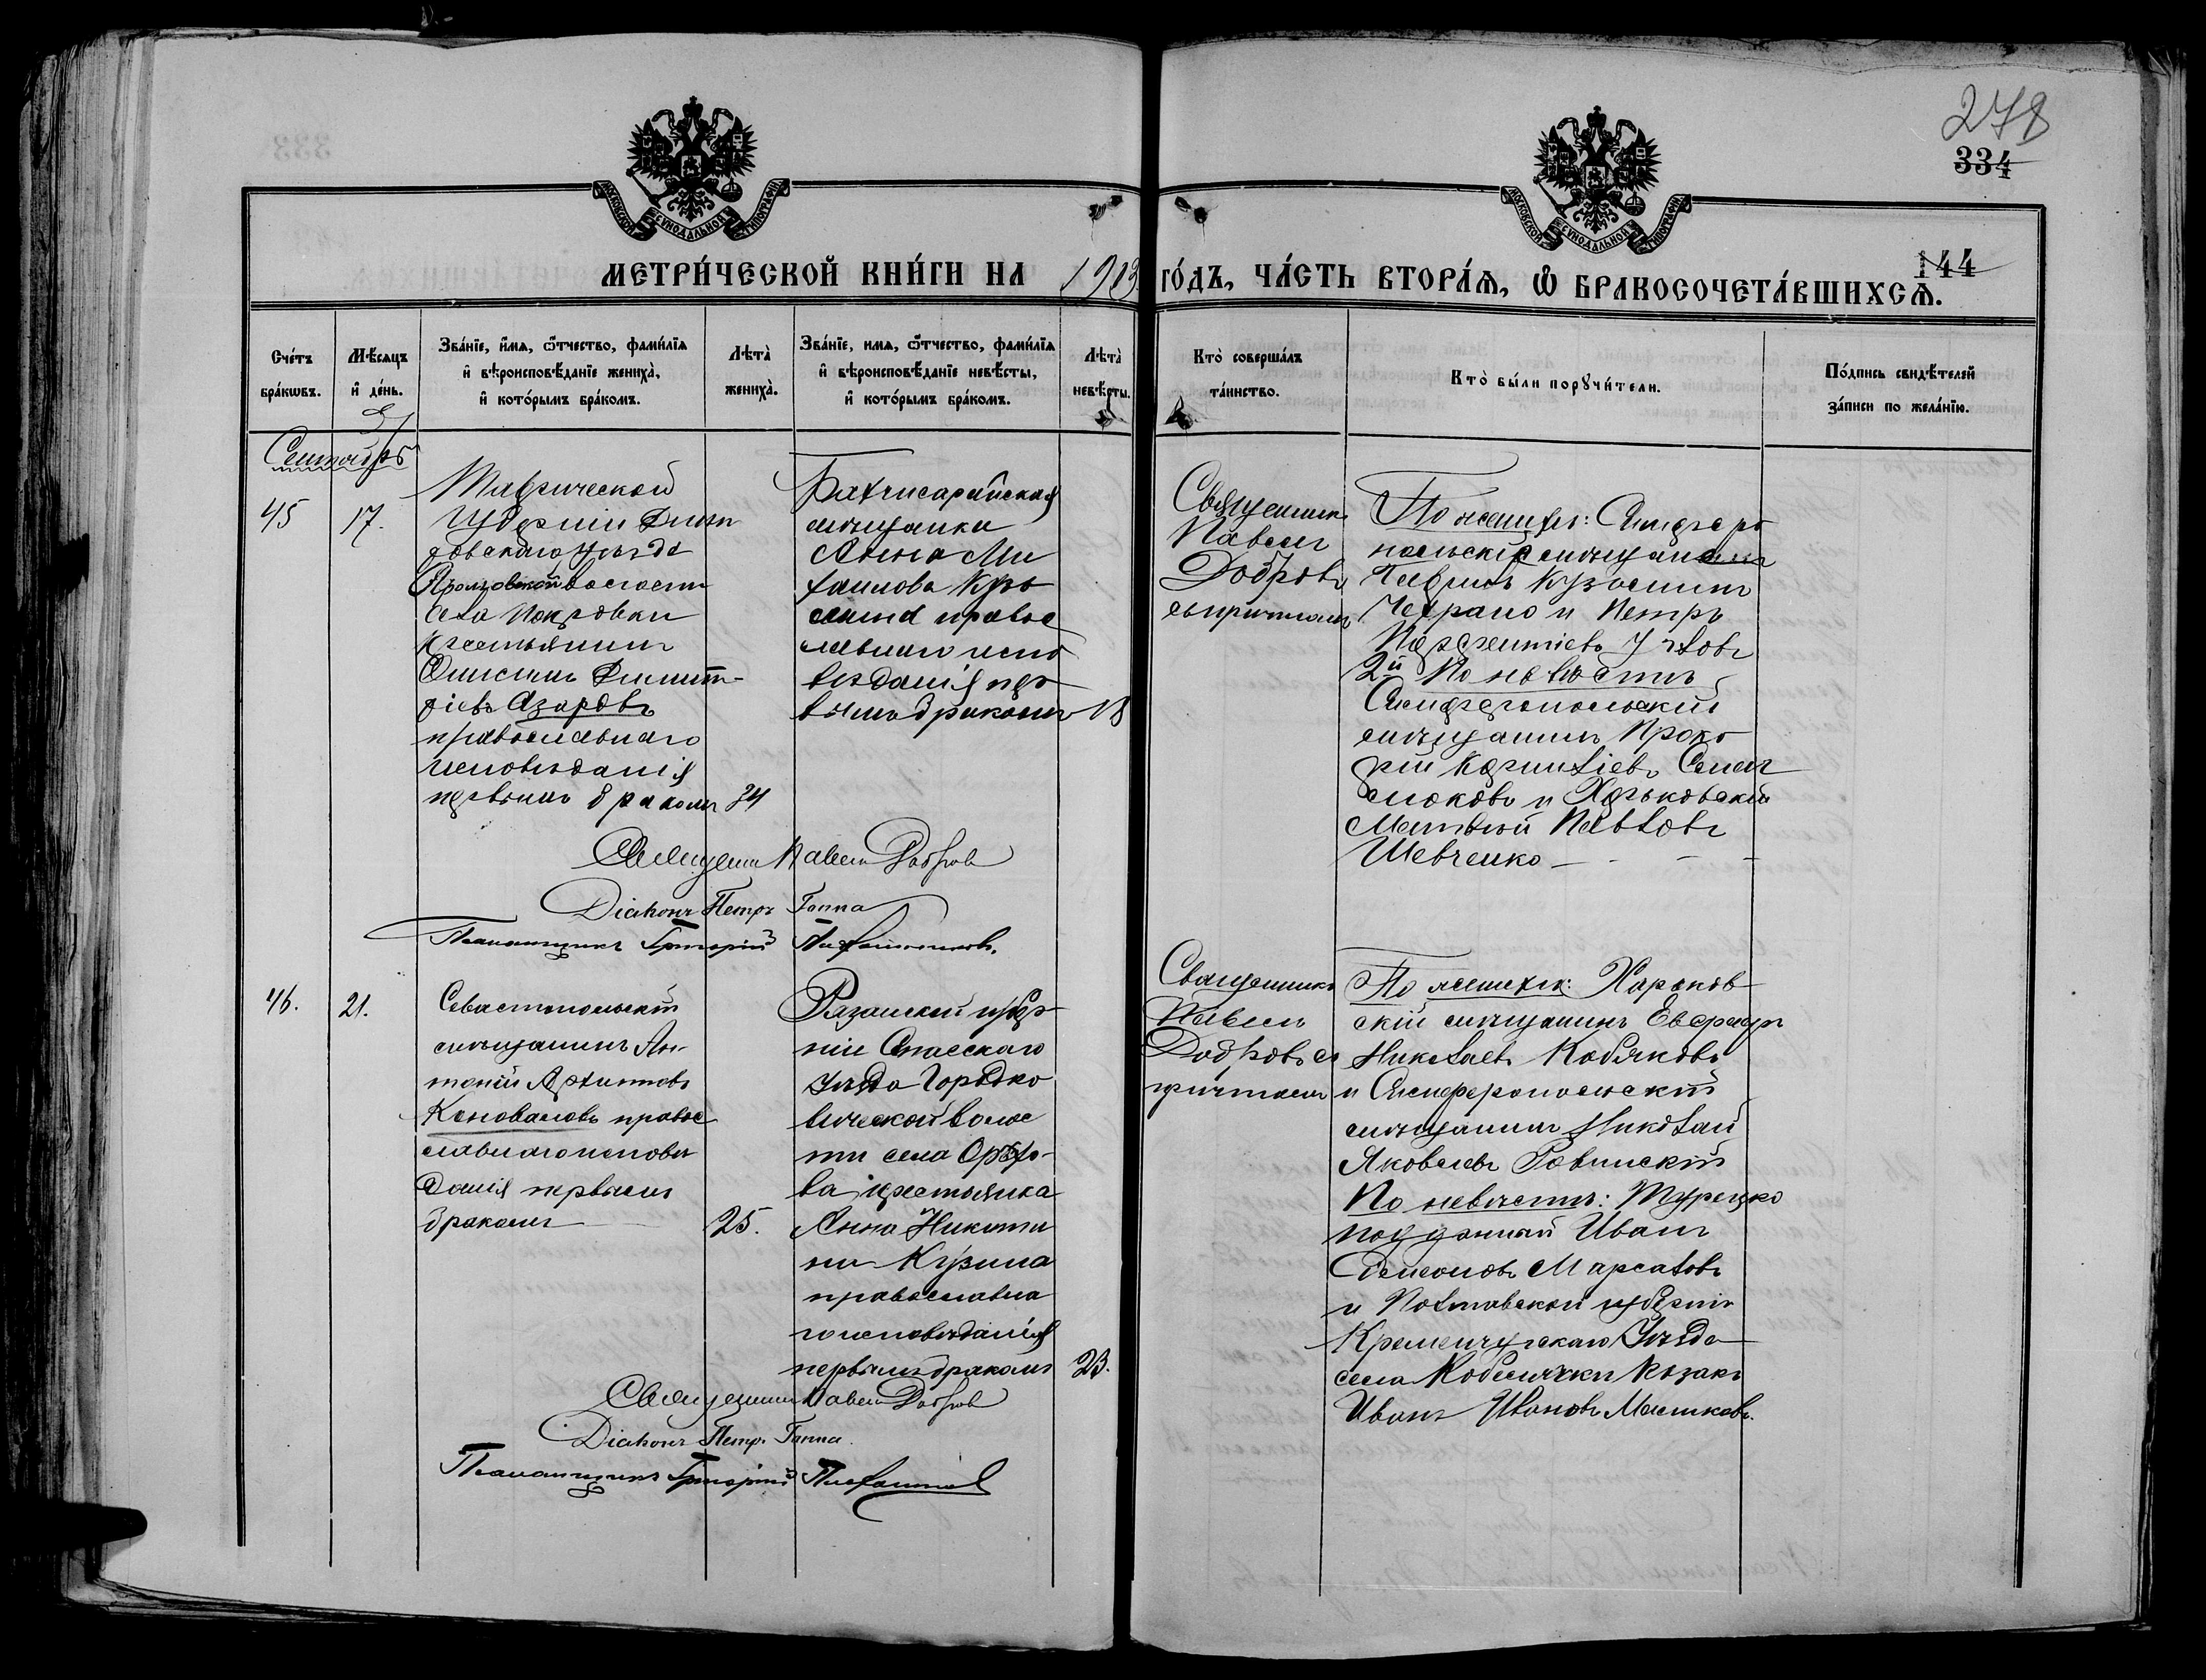 278
334
144
МОСКОВСКОЙ СѴНОДАЛЬНОЙ ТИПОГРАФІИ
МОСКОВСКОЙ СѴНОДАЛЬНОЙ ТИПОГРАФІИ
МЕТРИ́ЧЕСКОЙ КНИ́ГИ НА 1913 ГО́ДЪ, ЧА́СТЬ ВТОРА́Ѧ, Ѽ БРАКОСОЧЕТА́ВШИХСѦ.
Сче́тъ бра́кѡвъ.
Мѣ́сяцъ и҆ де́нь.
Зва́нїе, и҆́мѧ, ѻ҆́тчество, фами́лїѧ
и҆ вѣроисповѣ́данїе жениха̀,
и҆ кото́рымъ бра́комъ.
Лѣ́та жениха̀.
Зва́нїе, имѧ, ѻ҆́тчество, фами́лїѧ
и҆ вѣроисповѣ́данїе невѣ́сты,
и҆ кото́рымъ бра́комъ.
Лѣ́та невѣ́сты.
Кто̀ соверша́лъ та́инство.
Кто̀ бы́ли порꙋчи́тели.
По́дпись свидѣ́телей за́писи по жела́нїю.
Сентябрь
45
17.
Таврической
губерніи Днѣп
ровскаго уѣзда
волости
села Покровки
крестьянинъ
Онисимъ Димит-
ріевъ Азаровъ
православнаго
исповѣданія
первымъ бракомъ
34
Бахчисарайская
мѣщанка
Анна Ми
хаилова Кузь
мина правос
лавнаго испо
вѣданія пер
вымъ бракомъ
18
Священникъ
Павелъ
Добровъ
съ причтомъ
По женихѣ: Симферо
польскіе мѣщане
Гавріилъ Кузьминъ
и Петръ
Терентіевъ
По невѣстѣ
Симферопольскій
мѣщанинъ Проко
пій Корниліевъ
и Харьковскій
Матвѣй Павловъ
Шевченко
Священникъ Павелъ Добровъ
Діаконъ Петръ Гапка
Псаломщикъ Григорій
46.
21.
Севастопольскій
мѣщанинъ Ан-
тоній Архиповъ
Коноваловъ правос
лавнаго исповѣ
данія первымъ
бракомъ
25.
Рязанской губер-
ніи Спасскаго
уѣзда Городко
вической волос
ти села Орѣхо-
ва крестьянка
Анна Никити
на Курина
православна
го исповѣданія
первымъ бракомъ
23.
Священникъ
Павелъ
Добровъ съ
причтомъ
По женихѣ: Харьков
скій мѣщанинъ Евграфъ
Николаевъ Кобяковъ
и Симферопольскій
мѣщанинъ Николай
Яковлевъ Ровинскій
По невѣстѣ: Турецко
подданный Иванъ
Семеновъ Марсаловъ
и Полтавской губерніи
Кременчугскаго Уѣзда
села Кобелячки козакъ
Иванъ Ивановъ Масликовъ.
Священникъ Павелъ Добровъ
Діаконъ Петръ Гапка.
Псаломщикъ Григорій